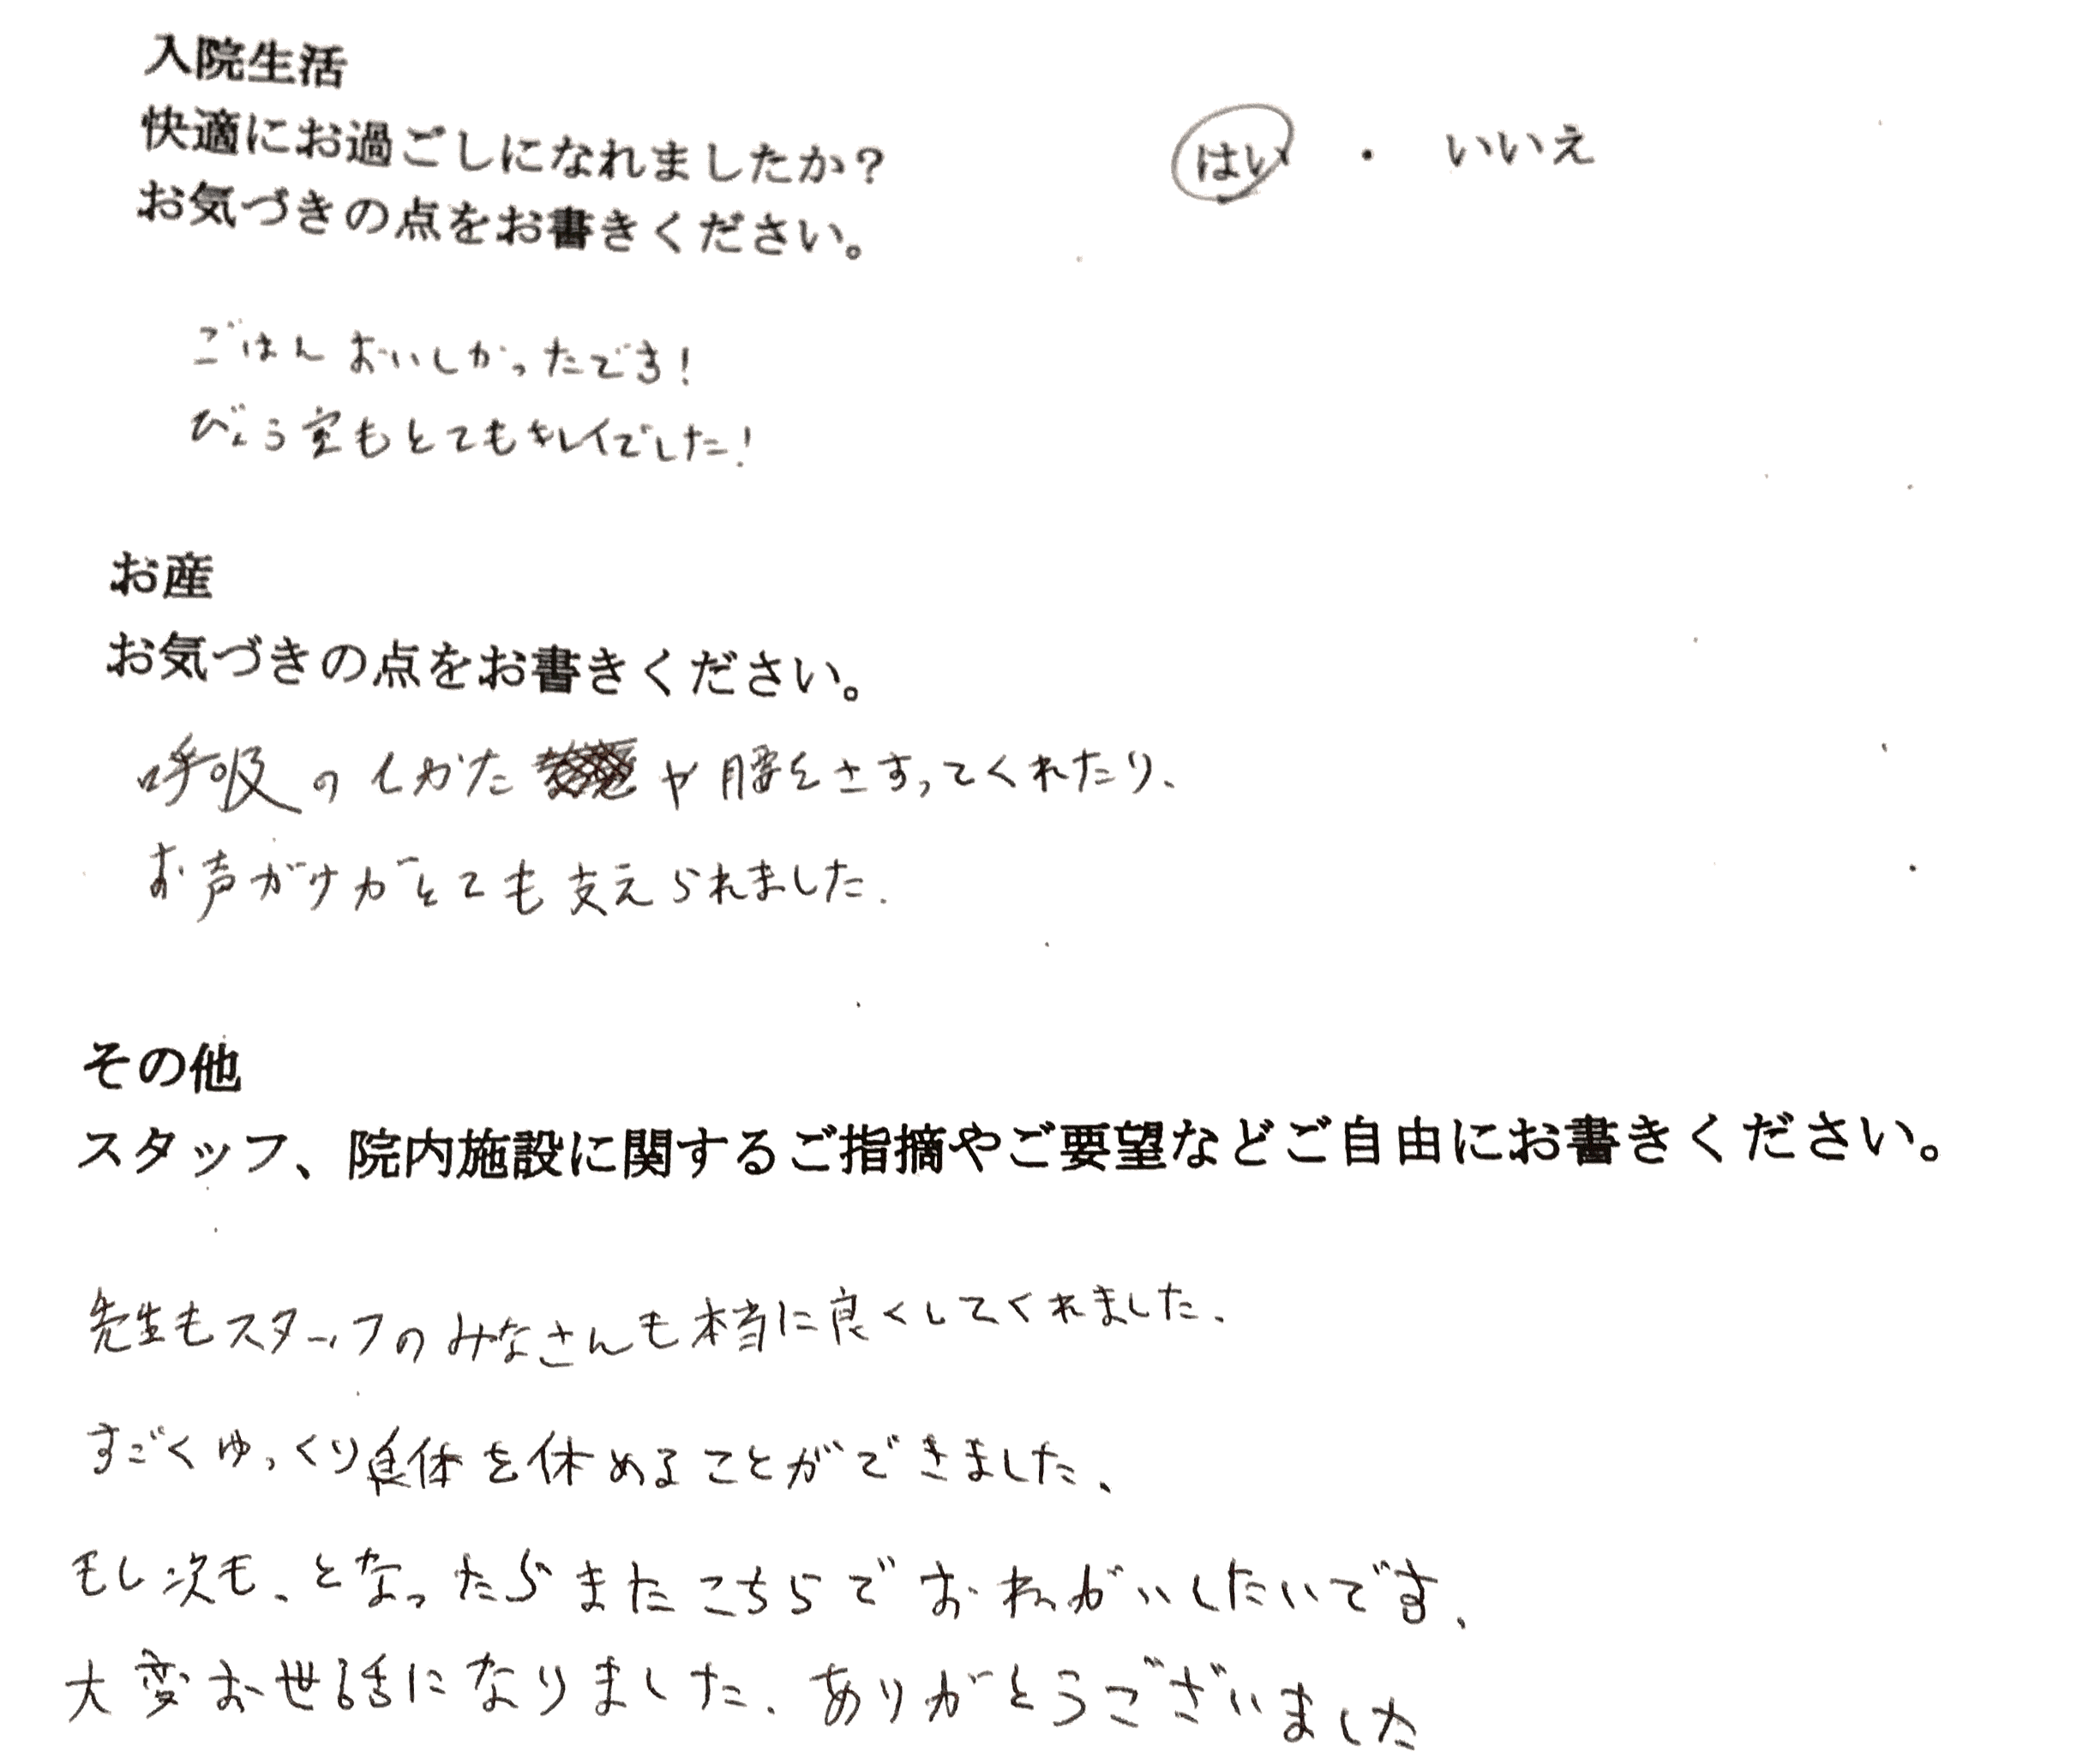 入院生活
快適にお過ごしになれましたか？ はい ・ いいえ
お気づきの点をお書きください。
ごはんおいしかったです！
びょう室もとてもキレイでした！
お産
お気づきの点をお書きください。
呼吸のしかたや腰をさすってくれたり、
お声がけがとても支えられました。
その他
スタッフ、院内施設に関するご指摘やご要望などご自由にお書きください。
先生もスタッフのみなさんも本当に良くしてくれました。
すごくゆっくり身体を休めることができました、
もし次も、となったらまたこちらでおねがいしたいです。
大変お世話になりました。ありがとうございました